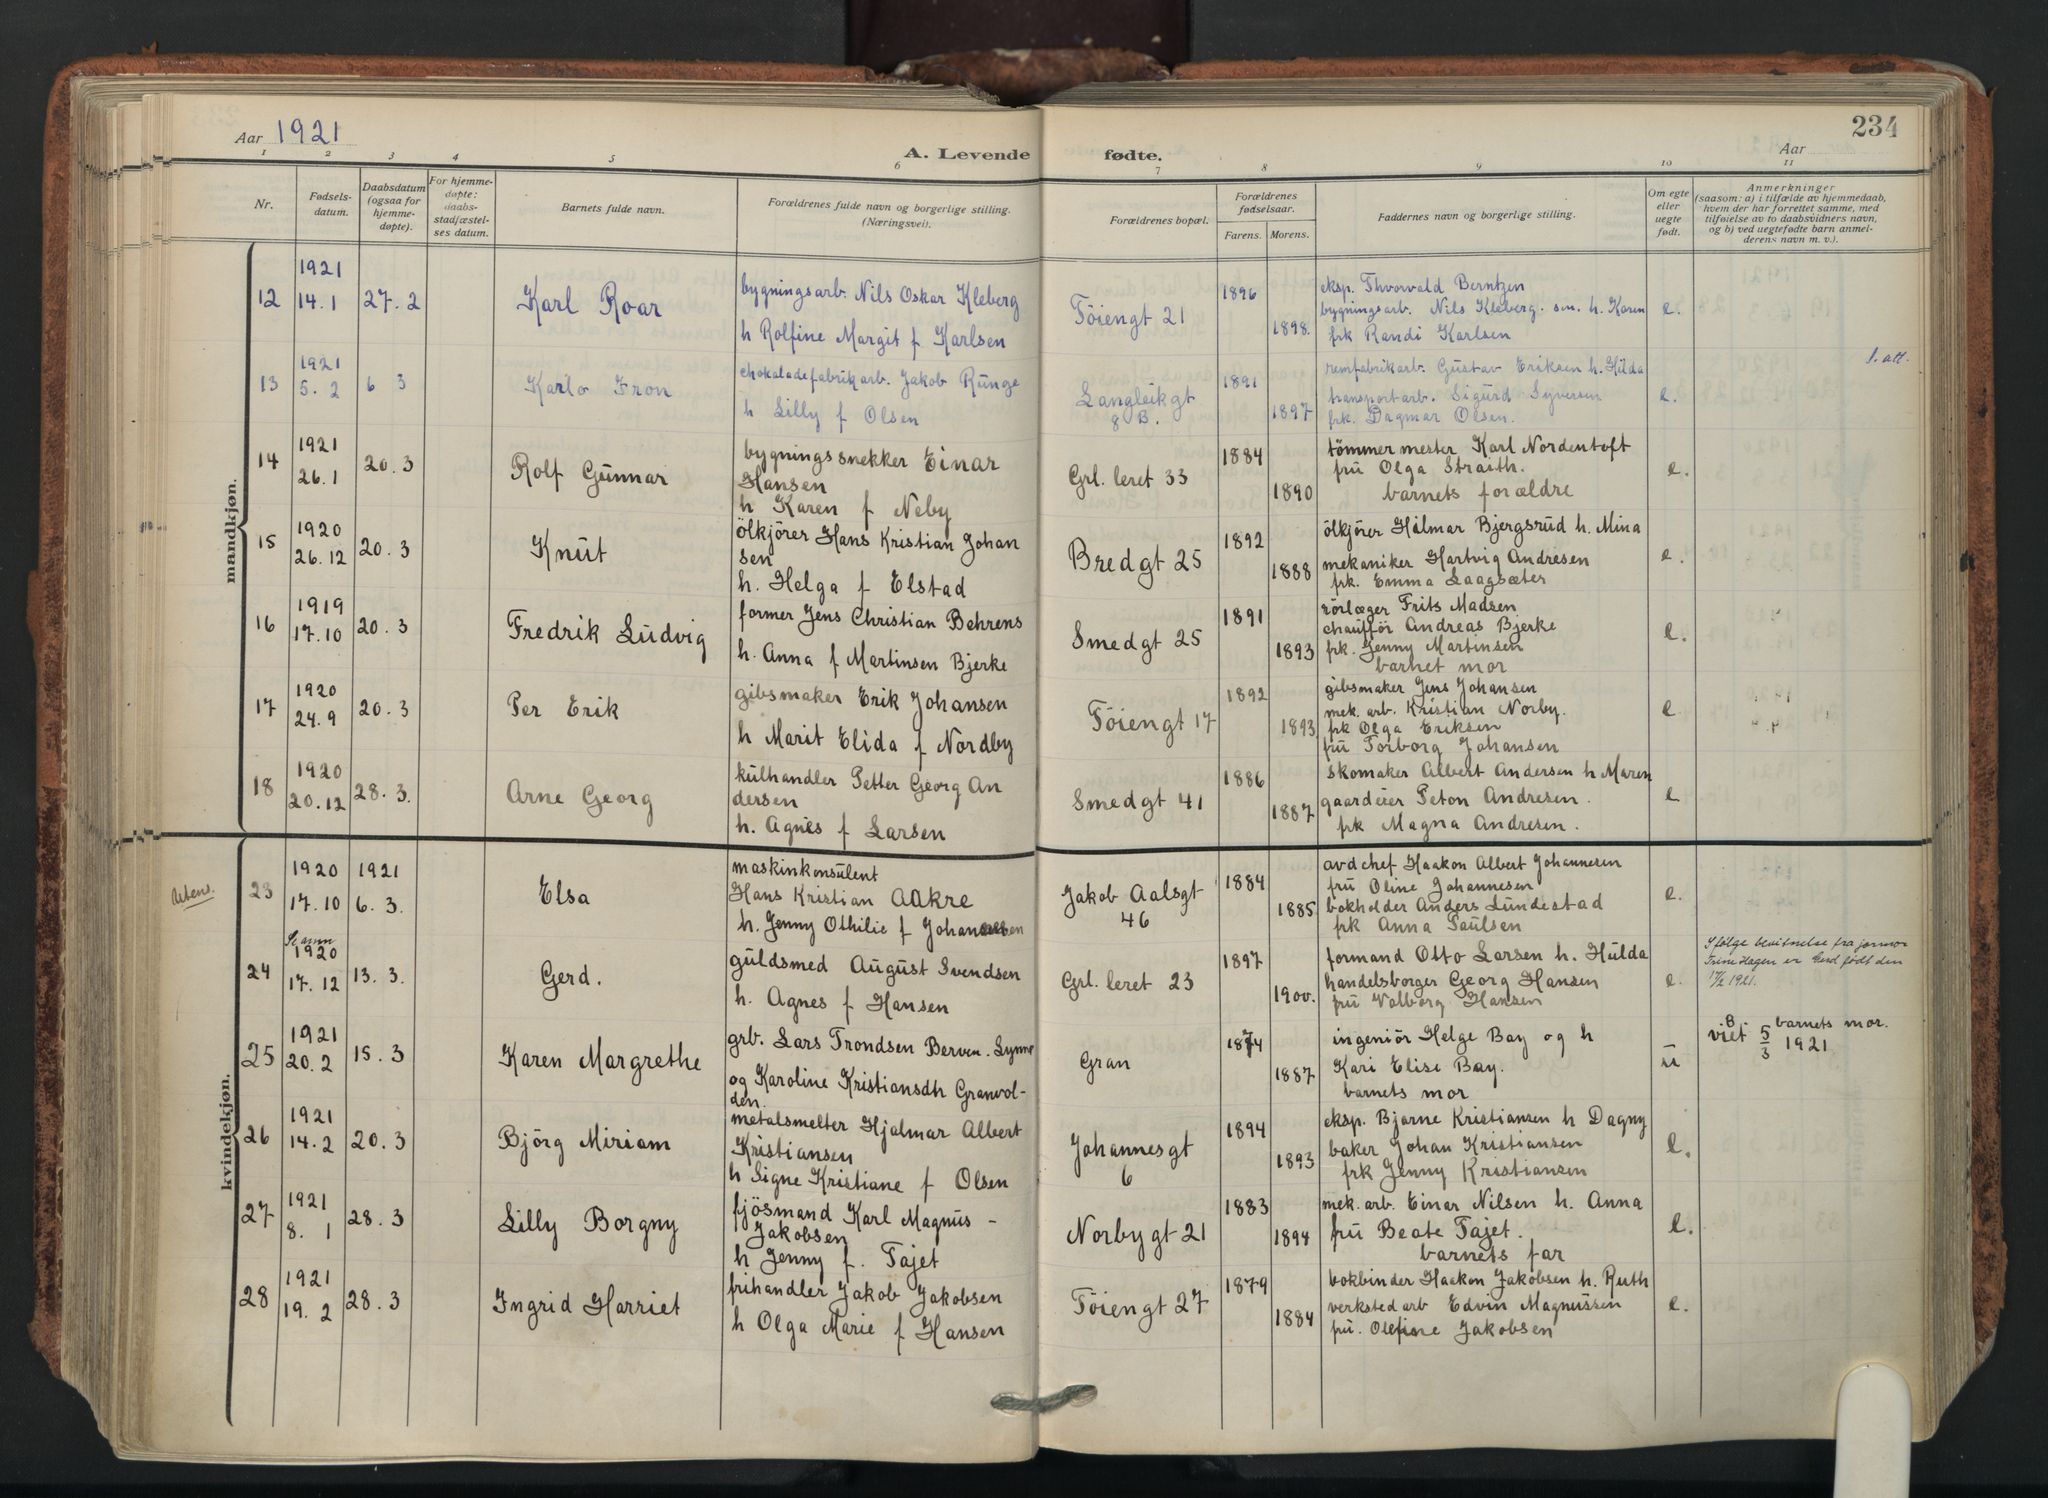 Aar 1921
234
Aar
A. Levende fødte.
1 2 3 4 5 6 7 8 9 10 11
Nr.
Fødsels-
datum.
Daabsdatum
(ogsaa for
hjemme-
døpte).
For hjemme-
døpte:
daabs-
stadfæstel-
ses datum.
Barnets fulde navn.
Forældrenes fulde navn og borgerlige stilling.
(Næringsvei).
Forældrenes bopæl.
Forældrenes
fødselsaar.
Farens. Morens.
Faddernes navn og borgerlige stilling.
Om egte
eller
uegte
født.
Anmerkninger
(saasom: a) i tilfælde av hjemmedaab,
hvem der har forrettet samme, med
tilføielse av to daabsvidners navn,
og b) ved uegtefødte barn anmel-
derens navn m. v.).
mandkjøn.
12
1921
14.1
27.2
Karl Roar
bygningsarb. Nils Oskar Kleberg
h Rolfine Margit f Karlsen
Töiengt 21
1896
1898.
eksp. Thorvald Berntzen
bygningsarb. Nils Kleberg. sen. h. Karen
frk Randi Karlsen
e.
13
1921
5.2
6 3
Karlo Fron
chokaladefabrikarb. Jakob Runge
h Lilly f Olsen
Langleikgt
8 B.
1891
1897
remfabrikarb. Gustav Eriksen h. Hilda
transportarb. Sigurd Syversen
frk. Dagmar Olsen.
e.
1. att.
14
1921
26.1
20.3
Rolf Gunnar
bygningssnekker Einar
Hansen
h Karen f Neby
Grl. leret 33
1884
1890
tömmermester Karl Nordentoft
fru Olga Straith.
barnets forældre
e.
15
1920
26.12
20.3
Knut
ölkjörer Hans Kristian Johan
sen
h. Helga f Elstad
Bredgt 25
1892
1888
ölkjörer Hilmar Bjergsrud h. Mina
mekaniker Hartvig Andresen
frk. Emma Laagsæter
e.
16
1919
17.10
20.3
Fredrik Ludvig
former Jens Christian Behrens
h. Anna f Martinsen Bjerke
Smedgt 25
1891
1893
rörlæger Frits Madsen
chaufför Andreas Bjerke
frk. Jenny Martinsen
barnet mor
e.
17
1920
24.9
20.3
Per Erik
gibsmaker Erik Johansen
h Marit Elida f Nordby
Töiengt 17
1892
1893
gibsmaker Jens Johansen
mek. arb. Kristian Norby.
frk Olga Eriksen
fru Torborg Johansen
e
18
1920
20.12
28.3.
Arne Georg
kulhandler Petter Georg An
dersen
h. Agnes f Larsen
Smedgt 41
1886
1887
skomaker Albert Andersen h Maren
gaardeier Peton Andresen.
frk Magna Andresen.
e
kvindekjøn.
23
1920
17.10
1921
6.3.
Elsa
maskinkonsulent
Hans Kristian Aakre
h. Jenny Othilie f Johannessen
Jakob Aalsgt
46
1884
1885
avdchef Haakon Albert Johannesen
fru Oline Johannesen
bokholder Anders Lundestad
frk Anna Paulsen
e.
24
1920
17.12
13.3.
Gerd.
guldsmed August Svendsen
h. Agnes f Hansen
Grl. leret 23
1897
1900.
formand Otto Larsen h. Hulda
handelsborger Georg Hansen
fru Valborg Hansen
e.
Ifölge bevitnelse fra jormor
Trine Hagen er Gerd født den
17/2 1921.
25
1921
20.2
15.3
Karen Margrethe
grb. Lars Trondsen Berven. Lynne
og Karoline Kristiansdh Granvol-
den.
Gran
1874
1887
ingeniör Helge Bay og h
Kari Elise Bay.
barnets mor
u
viet 5/3 1921
barnets mor.
26
1921
14.2
20.3
Björg Miriam
metalsmelter Hjalmar Albert
Kristiansen
h Signe Kristiane f Olsen
Johannesgt
6
1894
1893
eksp. Bjarne Kristiansen h Dagny
baker Johan Kristiansen
frk Jenny Kristiansen
e.
27
1921
8.1
28.3
Lilly Borgny
fjösmand Karl Magnus -
Jakobsen
h Jenny f. Tajet
Norbygt 21
1883
1894
mek. arb. Einar Nilsen h. Anna
fru Beate Tajet.
barnets far
e.
28
1921
19.2
28.3
Ingrid Harriet
frihandler Jakob Jakobsen
h Olga Marie f Hansen
Töiengt 27
1879
1884
bokbinder Haakon Jakobsen h. Ruth
verkstedarb Edvin Magnussen
fru. Olefine Jakobsen
e.